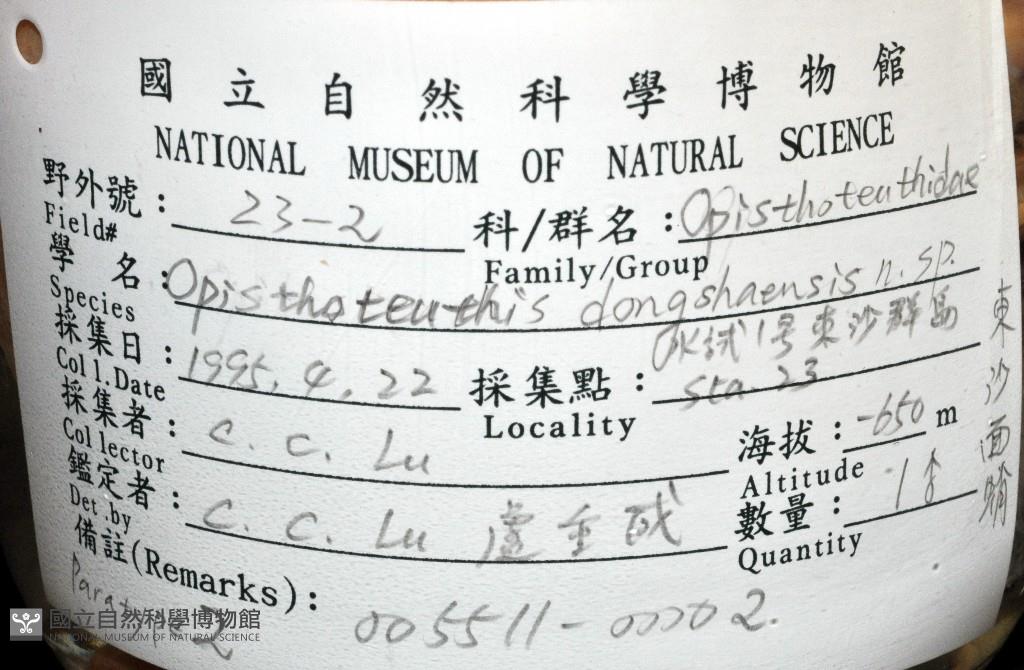 國立自然科學博物館
NATIONAL MUSEUM OF NATURAL SCIENCE
野外號 : 23-2 科/群名 : Opisthoteuthidae
Field# Family/Group
學名 : Opisthoteuthis dongshaensis n. sp.
Species
水試1号東沙群島
採集日 : 1995. 4. 22 採集點 : Sta. 23
Coll.Date Locality
東沙面蛸
採集者 : C. C. Lu 海拔 : -650 m
Collector Altitude
鑑定者 : C. C. Lu 盧重成 數量 : 1♂
Det.by Quantity
備註(Remarks) :
2 005511-00002.
國立自然科學博物館
NATIONAL MUSEUM OF NATURAL SCIENCE